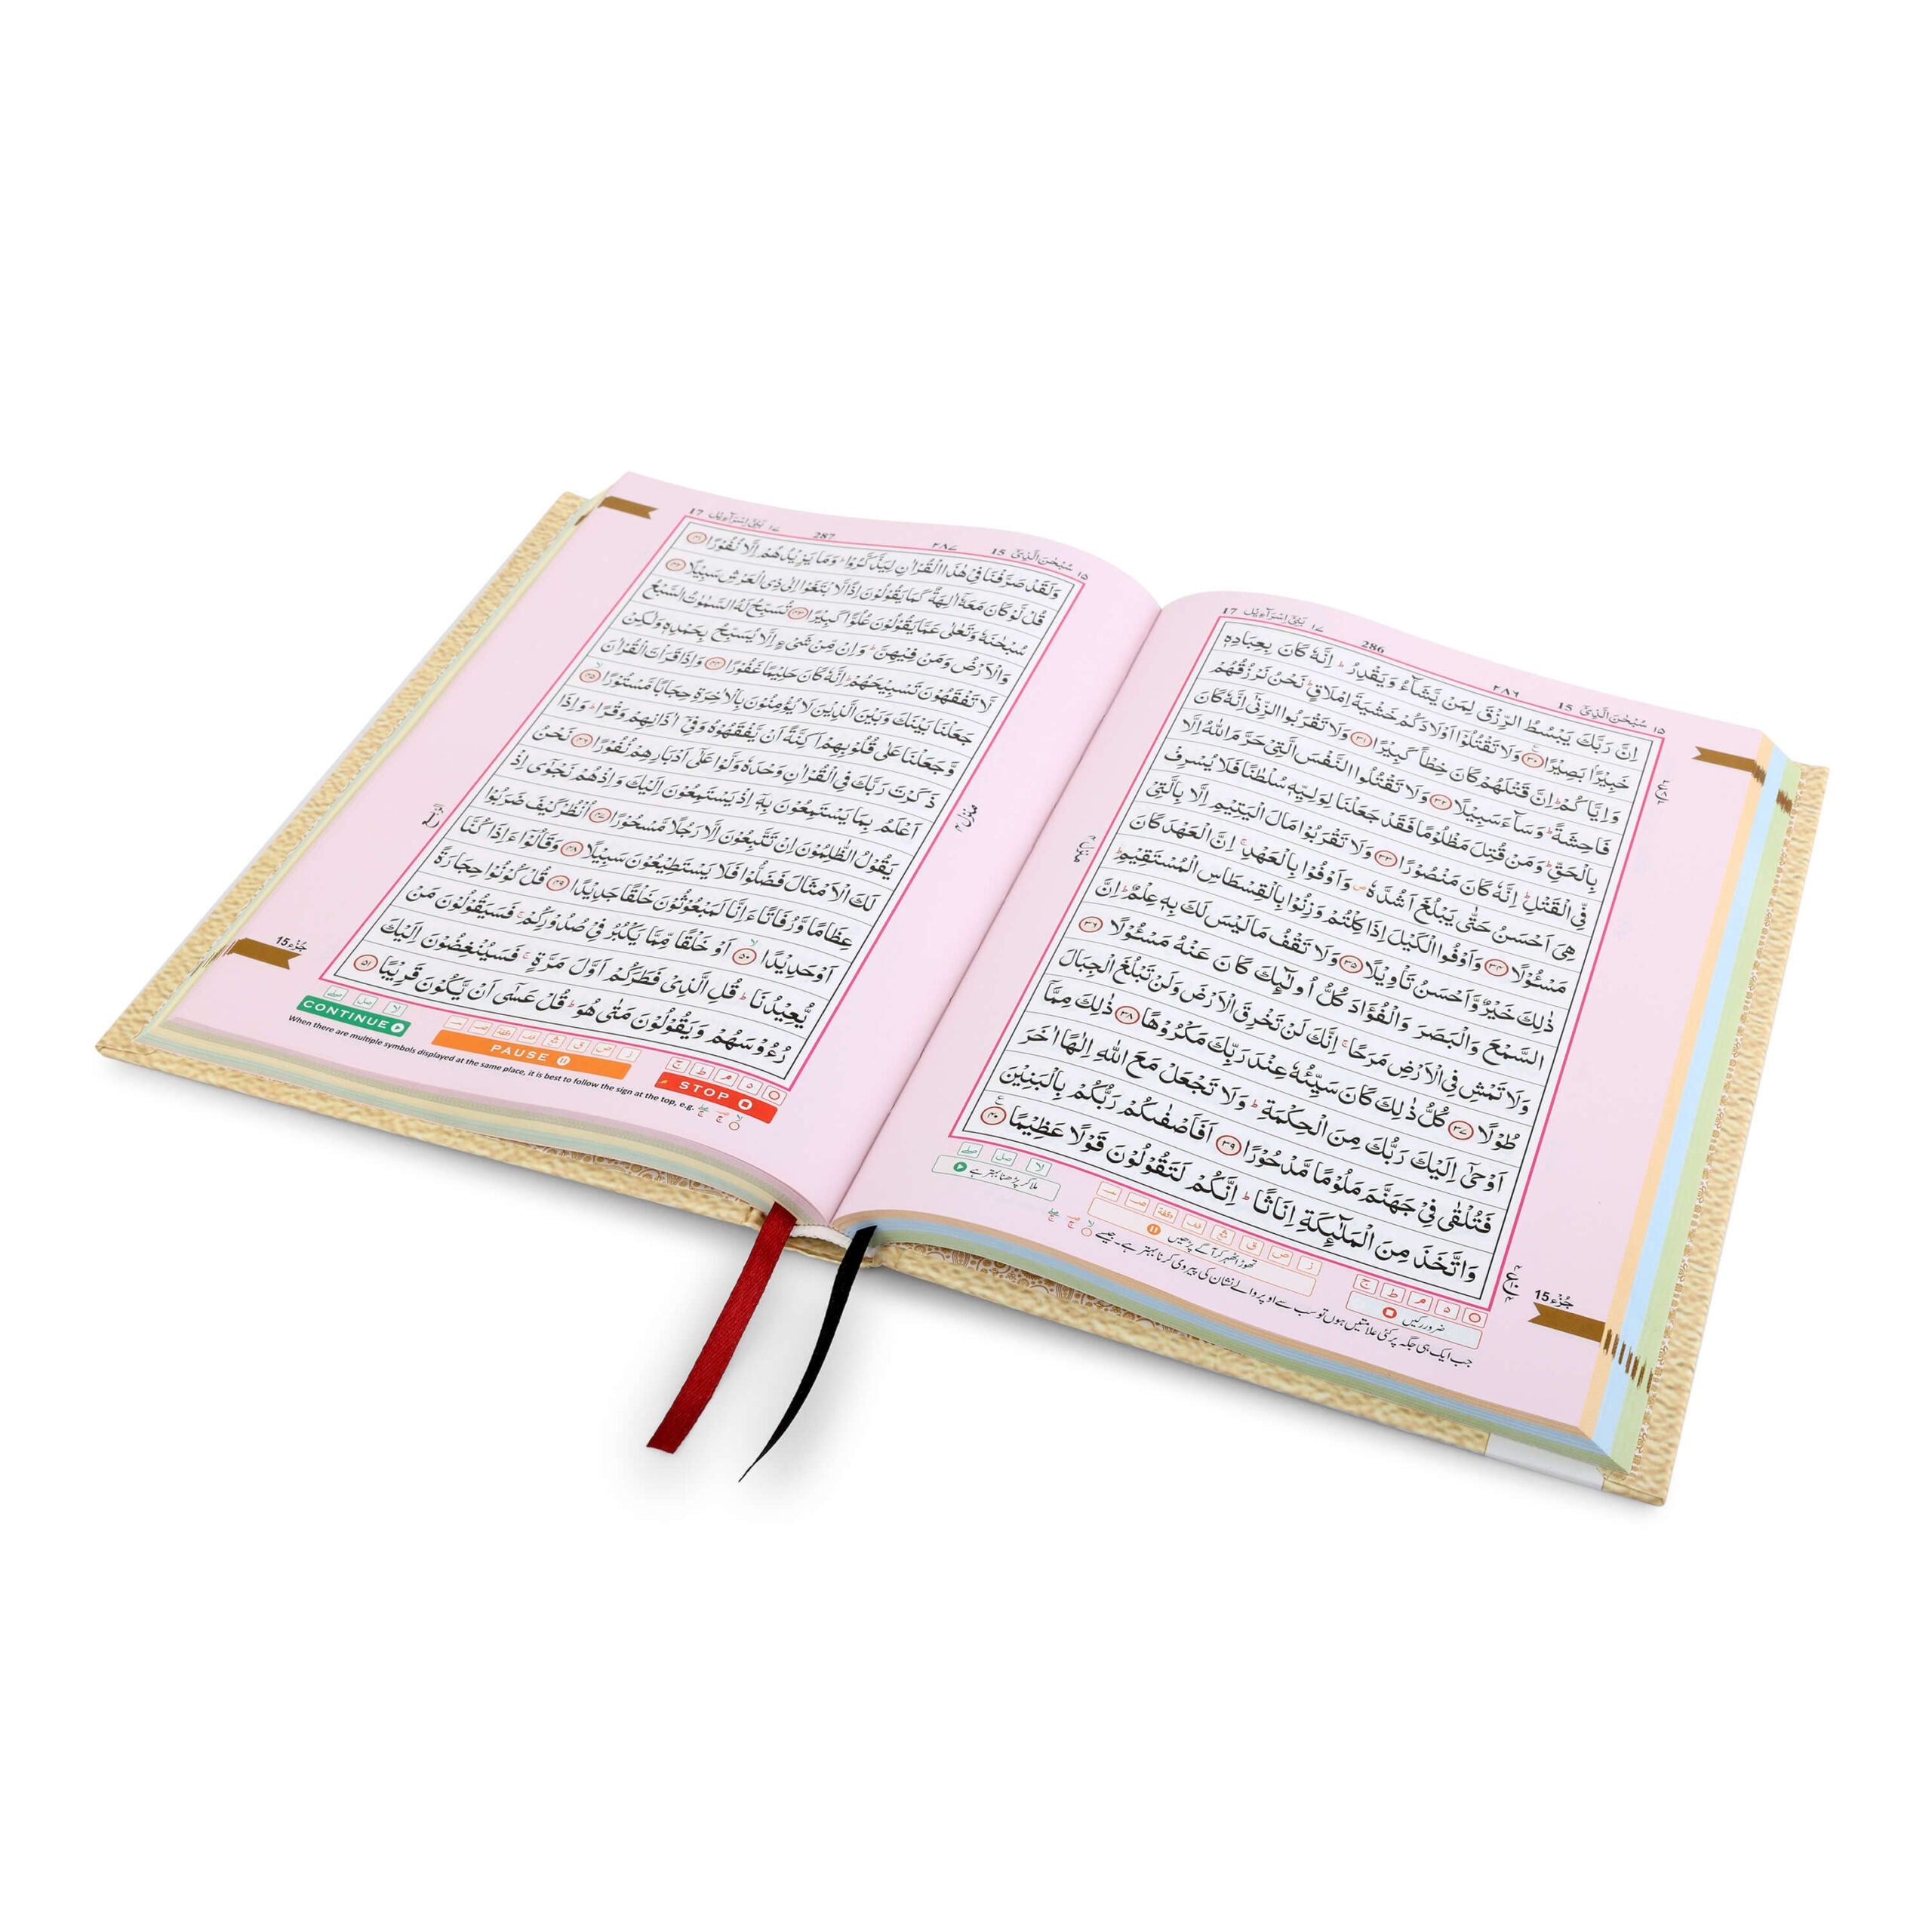 ١٥ سُبْحٰنَ الَّذِيْۤ 15
٢٨٦
286
١٧ بَنِيْۤ اِسْرَآءِيْل 17
اِنَّ رَبَّكَ يَبْسُطُ الرِّزْقَ لِمَنْ يَّشَآءُ وَيَقْدِرُ ؕ اِنَّهٗ كَانَ بِعِبَادِهٖ
خَبِيْرًۢا بَصِيْرًا ۝٣٠ وَلَا تَقْتُلُوْۤا اَوْلَادَكُمْ خَشْيَةَ اِمْلَاقٍ ؕ نَحْنُ نَرْزُقُهُمْ
وَاِيَّاكُمْ ؕ اِنَّ قَتْلَهُمْ كَانَ خِطْاً كَبِيْرًا ۝٣١ وَلَا تَقْرَبُوا الزِّنٰٓى اِنَّهٗ كَانَ
فَاحِشَةً ؕ وَسَآءَ سَبِيْلًا ۝٣٢ وَلَا تَقْتُلُوا النَّفْسَ الَّتِيْ حَرَّمَ اللّٰهُ اِلَّا
بِالْحَقِّ ؕ وَمَنْ قُتِلَ مَظْلُوْمًا فَقَدْ جَعَلْنَا لِوَلِيِّهٖ سُلْطٰنًا فَلَا يُسْرِفْ
فِّي الْقَتْلِ ؕ اِنَّهٗ كَانَ مَنْصُوْرًا ۝٣٣ وَلَا تَقْرَبُوْا مَالَ الْيَتِيْمِ اِلَّا بِالَّتِيْ
هِيَ اَحْسَنُ حَتّٰى يَبْلُغَ اَشُدَّهٗ ص وَاَوْفُوْا بِالْعَهْدِ ۚ اِنَّ الْعَهْدَ كَانَ
مَسْـُٔوْلًا ۝٣٤ وَاَوْفُوا الْكَيْلَ اِذَا كِلْتُمْ وَزِنُوْا بِالْقِسْطَاسِ الْمُسْتَقِيْمِ ؕ
ذٰلِكَ خَيْرٌ وَّاَحْسَنُ تَاْوِيْلًا ۝٣٥ وَلَا تَقْفُ مَا لَيْسَ لَكَ بِهٖ عِلْمٌ ؕ اِنَّ
السَّمْعَ وَالْبَصَرَ وَالْفُؤَادَ كُلُّ اُولٰٓئِكَ كَانَ عَنْهُ مَسْـُٔوْلًا ۝٣٦
وَلَا تَمْشِ فِي الْاَرْضِ مَرَحًا ۚ اِنَّكَ لَنْ تَخْرِقَ الْاَرْضَ وَلَنْ تَبْلُغَ الْجِبَالَ
طُوْلًا ۝٣٧ كُلُّ ذٰلِكَ كَانَ سَيِّئُهٗ عِنْدَ رَبِّكَ مَكْرُوْهًا ۝٣٨ ذٰلِكَ مِمَّاۤ
اَوْحٰۤى اِلَيْكَ رَبُّكَ مِنَ الْحِكْمَةِ ؕ وَلَا تَجْعَلْ مَعَ اللّٰهِ اِلٰهًا اٰخَرَ
فَتُلْقٰى فِيْ جَهَنَّمَ مَلُوْمًا مَّدْحُوْرًا ۝٣٩ اَفَاَصْفٰىكُمْ رَبُّكُمْ بِالْبَنِيْنَ
وَاتَّخَذَ مِنَ الْمَلٰٓئِكَةِ اِنَاثًا ؕ اِنَّكُمْ لَتَقُوْلُوْنَ قَوْلًا عَظِيْمًا ۝٤٠
منزل ٤
جُزْء 15
ضرور رکیں
تھوڑا ٹھہر کر آگے پڑھیں
ملا کر پڑھنا بہتر ہے
جب ایک ہی جگہ پر کئی علامتیں ہوں تو سب سے اوپر والے نشان کی پیروی کرنا بہتر ہے۔ جیسے
١٥ سُبْحٰنَ الَّذِيْۤ 15
٢٨٧
287
١٧ بَنِيْۤ اِسْرَآءِيْل 17
وَلَقَدْ صَرَّفْنَا فِيْ هٰذَا الْقُرْاٰنِ لِيَذَّكَّرُوْا ؕ وَمَا يَزِيْدُهُمْ اِلَّا نُفُوْرًا ۝٤١
قُلْ لَّوْ كَانَ مَعَهٗۤ اٰلِهَةٌ كَمَا يَقُوْلُوْنَ اِذًا لَّابْتَغَوْا اِلٰى ذِي الْعَرْشِ سَبِيْلًا ۝٤٢
سُبْحٰنَهٗ وَتَعٰلٰى عَمَّا يَقُوْلُوْنَ عُلُوًّا كَبِيْرًا ۝٤٣ تُسَبِّحُ لَهُ السَّمٰوٰتُ السَّبْعُ
وَالْاَرْضُ وَمَنْ فِيْهِنَّ ؕ وَاِنْ مِّنْ شَيْءٍ اِلَّا يُسَبِّحُ بِحَمْدِهٖ وَلٰكِنْ
لَّا تَفْقَهُوْنَ تَسْبِيْحَهُمْ ؕ اِنَّهٗ كَانَ حَلِيْمًا غَفُوْرًا ۝٤٤ وَاِذَا قَرَاْتَ الْقُرْاٰنَ
جَعَلْنَا بَيْنَكَ وَبَيْنَ الَّذِيْنَ لَا يُؤْمِنُوْنَ بِالْاٰخِرَةِ حِجَابًا مَّسْتُوْرًا ۝٤٥
وَّجَعَلْنَا عَلٰى قُلُوْبِهِمْ اَكِنَّةً اَنْ يَّفْقَهُوْهُ وَفِيْۤ اٰذَانِهِمْ وَقْرًا ؕ وَاِذَا
ذَكَرْتَ رَبَّكَ فِي الْقُرْاٰنِ وَحْدَهٗ وَلَّوْا عَلٰۤى اَدْبَارِهِمْ نُفُوْرًا ۝٤٦ نَحْنُ
اَعْلَمُ بِمَا يَسْتَمِعُوْنَ بِهٖۤ اِذْ يَسْتَمِعُوْنَ اِلَيْكَ وَاِذْ هُمْ نَجْوٰۤى اِذْ
يَقُوْلُ الظّٰلِمُوْنَ اِنْ تَتَّبِعُوْنَ اِلَّا رَجُلًا مَّسْحُوْرًا ۝٤٧ اُنْظُرْ كَيْفَ ضَرَبُوْا
لَكَ الْاَمْثَالَ فَضَلُّوْا فَلَا يَسْتَطِيْعُوْنَ سَبِيْلًا ۝٤٨ وَقَالُوْۤا ءَاِذَا كُنَّا
عِظَامًا وَّرُفَاتًا ءَاِنَّا لَمَبْعُوْثُوْنَ خَلْقًا جَدِيْدًا ۝٤٩ قُلْ كُوْنُوْا حِجَارَةً
اَوْ حَدِيْدًا ۝٥٠ اَوْ خَلْقًا مِّمَّا يَكْبُرُ فِيْ صُدُوْرِكُمْ ۚ فَسَيَقُوْلُوْنَ مَنْ
يُّعِيْدُنَا ؕ قُلِ الَّذِيْ فَطَرَكُمْ اَوَّلَ مَرَّةٍ ۚ فَسَيُنْغِضُوْنَ اِلَيْكَ
رُءُوْسَهُمْ وَيَقُوْلُوْنَ مَتٰى هُوَ ؕ قُلْ عَسٰۤى اَنْ يَّكُوْنَ قَرِيْبًا ۝٥١
منزل ٤
جُزْء 15
CONTINUE
PAUSE
STOP
When there are multiple symbols displayed at the same place, it is best to follow the sign at the top, e.g.